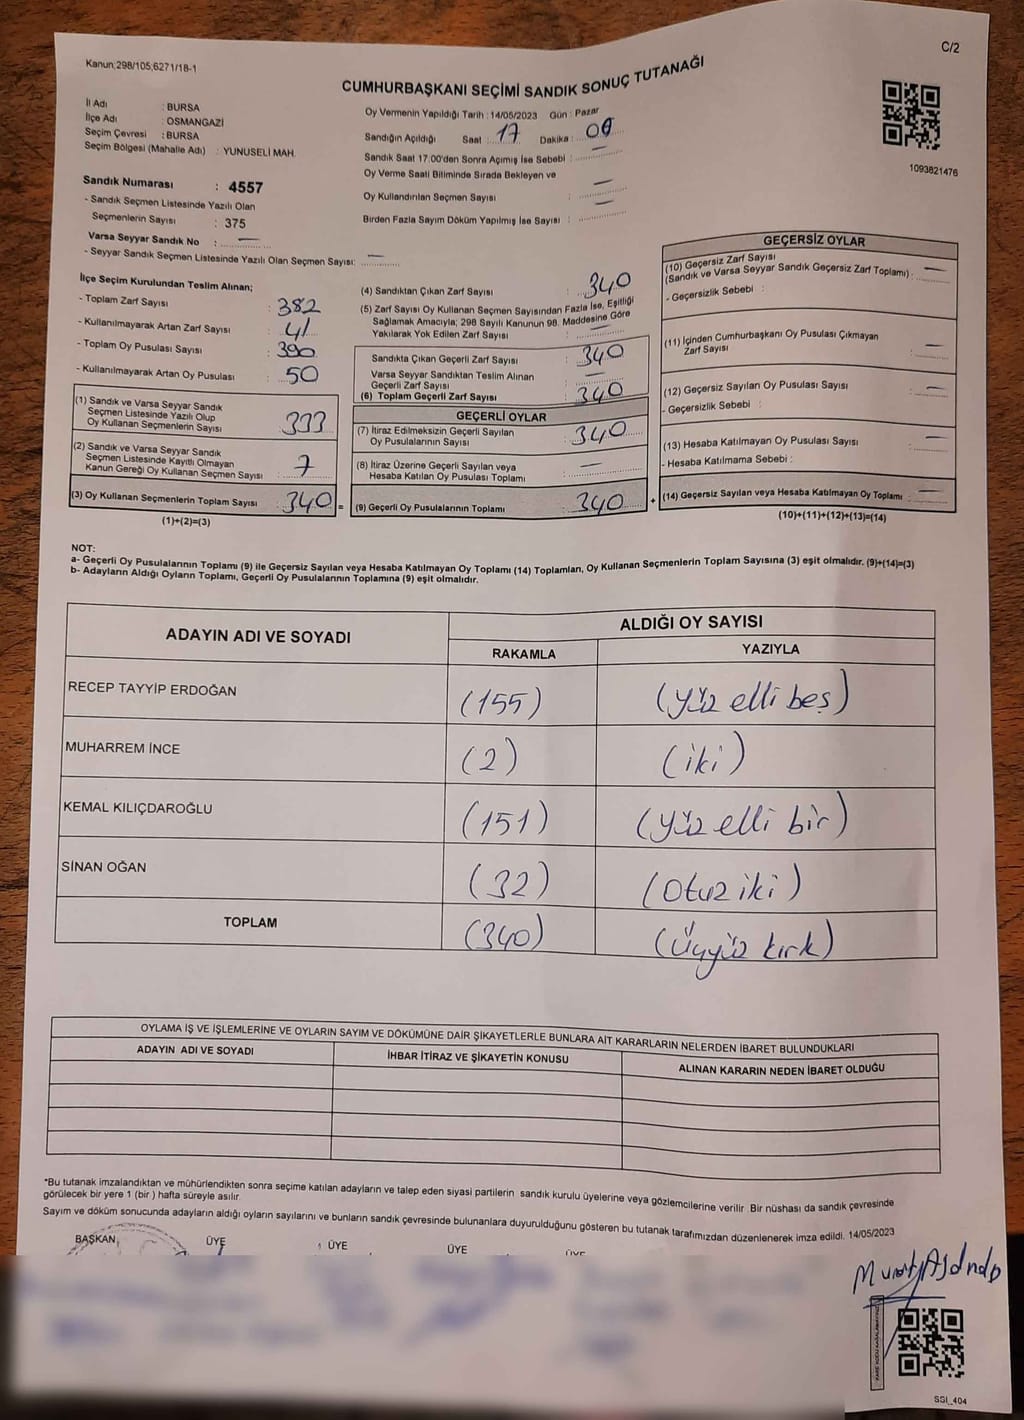 C/2
Kanun;298/105;6271/18-1
CUMHURBAŞKANI SEÇİMİ SANDIK SONUÇ TUTANAĞI
İl Adı : BURSA
İlçe Adı : OSMANGAZİ
Seçim Çevresi : BURSA
Seçim Bölgesi (Mahalle Adı) : YUNUSELİ MAH.
Sandık Numarası : 4557
- Sandık Seçmen Listesinde Yazılı Olan
Seçmenlerin Sayısı : 375
Varsa Seyyar Sandık No : —
- Seyyar Sandık Seçmen Listesinde Yazılı Olan Seçmen Sayısı: —
Oy Vermenin Yapıldığı Tarih : 14/05/2023 Gün : Pazar
Sandığın Açıldığı Saat : 17 Dakika : 00
Sandık Saat 17:00'den Sonra Açımış İse Sebebi : —
Oy Verme Saati Bitiminde Sırada Bekleyen ve
Oy Kullandırılan Seçmen Sayısı : —
Birden Fazla Sayım Döküm Yapılmış İse Sayısı : —
1093821476
İlçe Seçim Kurulundan Teslim Alınan;
- Toplam Zarf Sayısı : 382
- Kullanılmayarak Artan Zarf Sayısı : 41
- Toplam Oy Pusulası Sayısı : 390
- Kullanılmayarak Artan Oy Pusulası : 50
(1) Sandık ve Varsa Seyyar Sandık
Seçmen Listesinde Yazılı Olup
Oy Kullanan Seçmenlerin Sayısı : 333
(2) Sandık ve Varsa Seyyar Sandık
Seçmen Listesinde Kayıtlı Olmayan
Kanun Gereği Oy Kullanan Seçmen Sayısı : 7
(3) Oy Kullanan Seçmenlerin Toplam Sayısı : 340 =
(1)+(2)=(3)
(4) Sandıktan Çıkan Zarf Sayısı : 340
(5) Zarf Sayısı Oy Kullanan Seçmen Sayısından Fazla İse, Eşitliği
Sağlamak Amacıyla; 298 Sayılı Kanunun 98. Maddesine Göre
Yakılarak Yok Edilen Zarf Sayısı : —
Sandıkta Çıkan Geçerli Zarf Sayısı : 340
Varsa Seyyar Sandıktan Teslim Alınan
Geçerli Zarf Sayısı : —
(6) Toplam Geçerli Zarf Sayısı : 340
GEÇERLİ OYLAR
(7) İtiraz Edilmeksizin Geçerli Sayılan
Oy Pusulalarının Sayısı : 340
(8) İtiraz Üzerine Geçerli Sayılan veya
Hesaba Katılan Oy Pusulası Toplamı : —
(9) Geçerli Oy Pusulalarının Toplamı : 340 +
GEÇERSİZ OYLAR
(10) Geçersiz Zarf Sayısı
(Sandık ve Varsa Seyyar Sandık Geçersiz Zarf Toplamı) : —
- Geçersizlik Sebebi :
(11) İçinden Cumhurbaşkanı Oy Pusulası Çıkmayan
Zarf Sayısı : —
(12) Geçersiz Sayılan Oy Pusulası Sayısı : —
- Geçersizlik Sebebi :
(13) Hesaba Katılmayan Oy Pusulası Sayısı : —
- Hesaba Katılmama Sebebi :
(14) Geçersiz Sayılan veya Hesaba Katılmayan Oy Toplamı : —
(10)+(11)+(12)+(13)=(14)
NOT:
a- Geçerli Oy Pusulalarının Toplamı (9) ile Geçersiz Sayılan veya Hesaba Katılmayan Oy Toplamı (14) Toplamları, Oy Kullanan Seçmenlerin Toplam Sayısına (3) eşit olmalıdır. (9)+(14)=(3)
b- Adayların Aldığı Oyların Toplamı, Geçerli Oy Pusulalarının Toplamına (9) eşit olmalıdır.
ADAYIN ADI VE SOYADI
ALDIĞI OY SAYISI
RAKAMLA YAZIYLA
RECEP TAYYİP ERDOĞAN (155) (yüz elli beş)
MUHARREM İNCE (2) (iki)
KEMAL KILIÇDAROĞLU (151) (yüz elli bir)
SİNAN OĞAN (32) (otuz iki)
TOPLAM (340) (Üçyüz kırk)
OYLAMA İŞ VE İŞLEMLERİNE VE OYLARIN SAYIM VE DÖKÜMÜNE DAİR ŞİKAYETLERLE BUNLARA AİT KARARLARIN NELERDEN İBARET BULUNDUKLARI
ADAYIN ADI VE SOYADI İHBAR İTİRAZ VE ŞİKAYETİN KONUSU ALINAN KARARIN NEDEN İBARET OLDUĞU
*Bu tutanak imzalandıktan ve mühürlendikten sonra seçime katılan adayların ve talep eden siyasi partilerin sandık kurulu üyelerine veya gözlemcilerine verilir. Bir nüshası da sandık çevresinde
görülecek bir yere 1 (bir) hafta süreyle asılır.
Sayım ve döküm sonucunda adayların aldığı oyların sayılarını ve bunların sandık çevresinde bulunanlara duyurulduğunu gösteren bu tutanak tarafımızdan düzenlenerek imza edildi. 14/05/2023
BAŞKAN ÜYE ÜYE ÜYE ÜYE
SSI_404